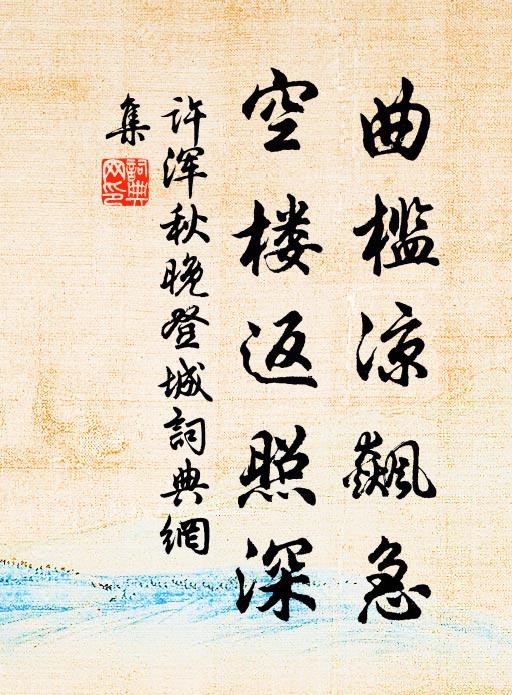 曲槛凉飙急
空楼返照深
许浑秋晚登城词典网
集
词典
网印